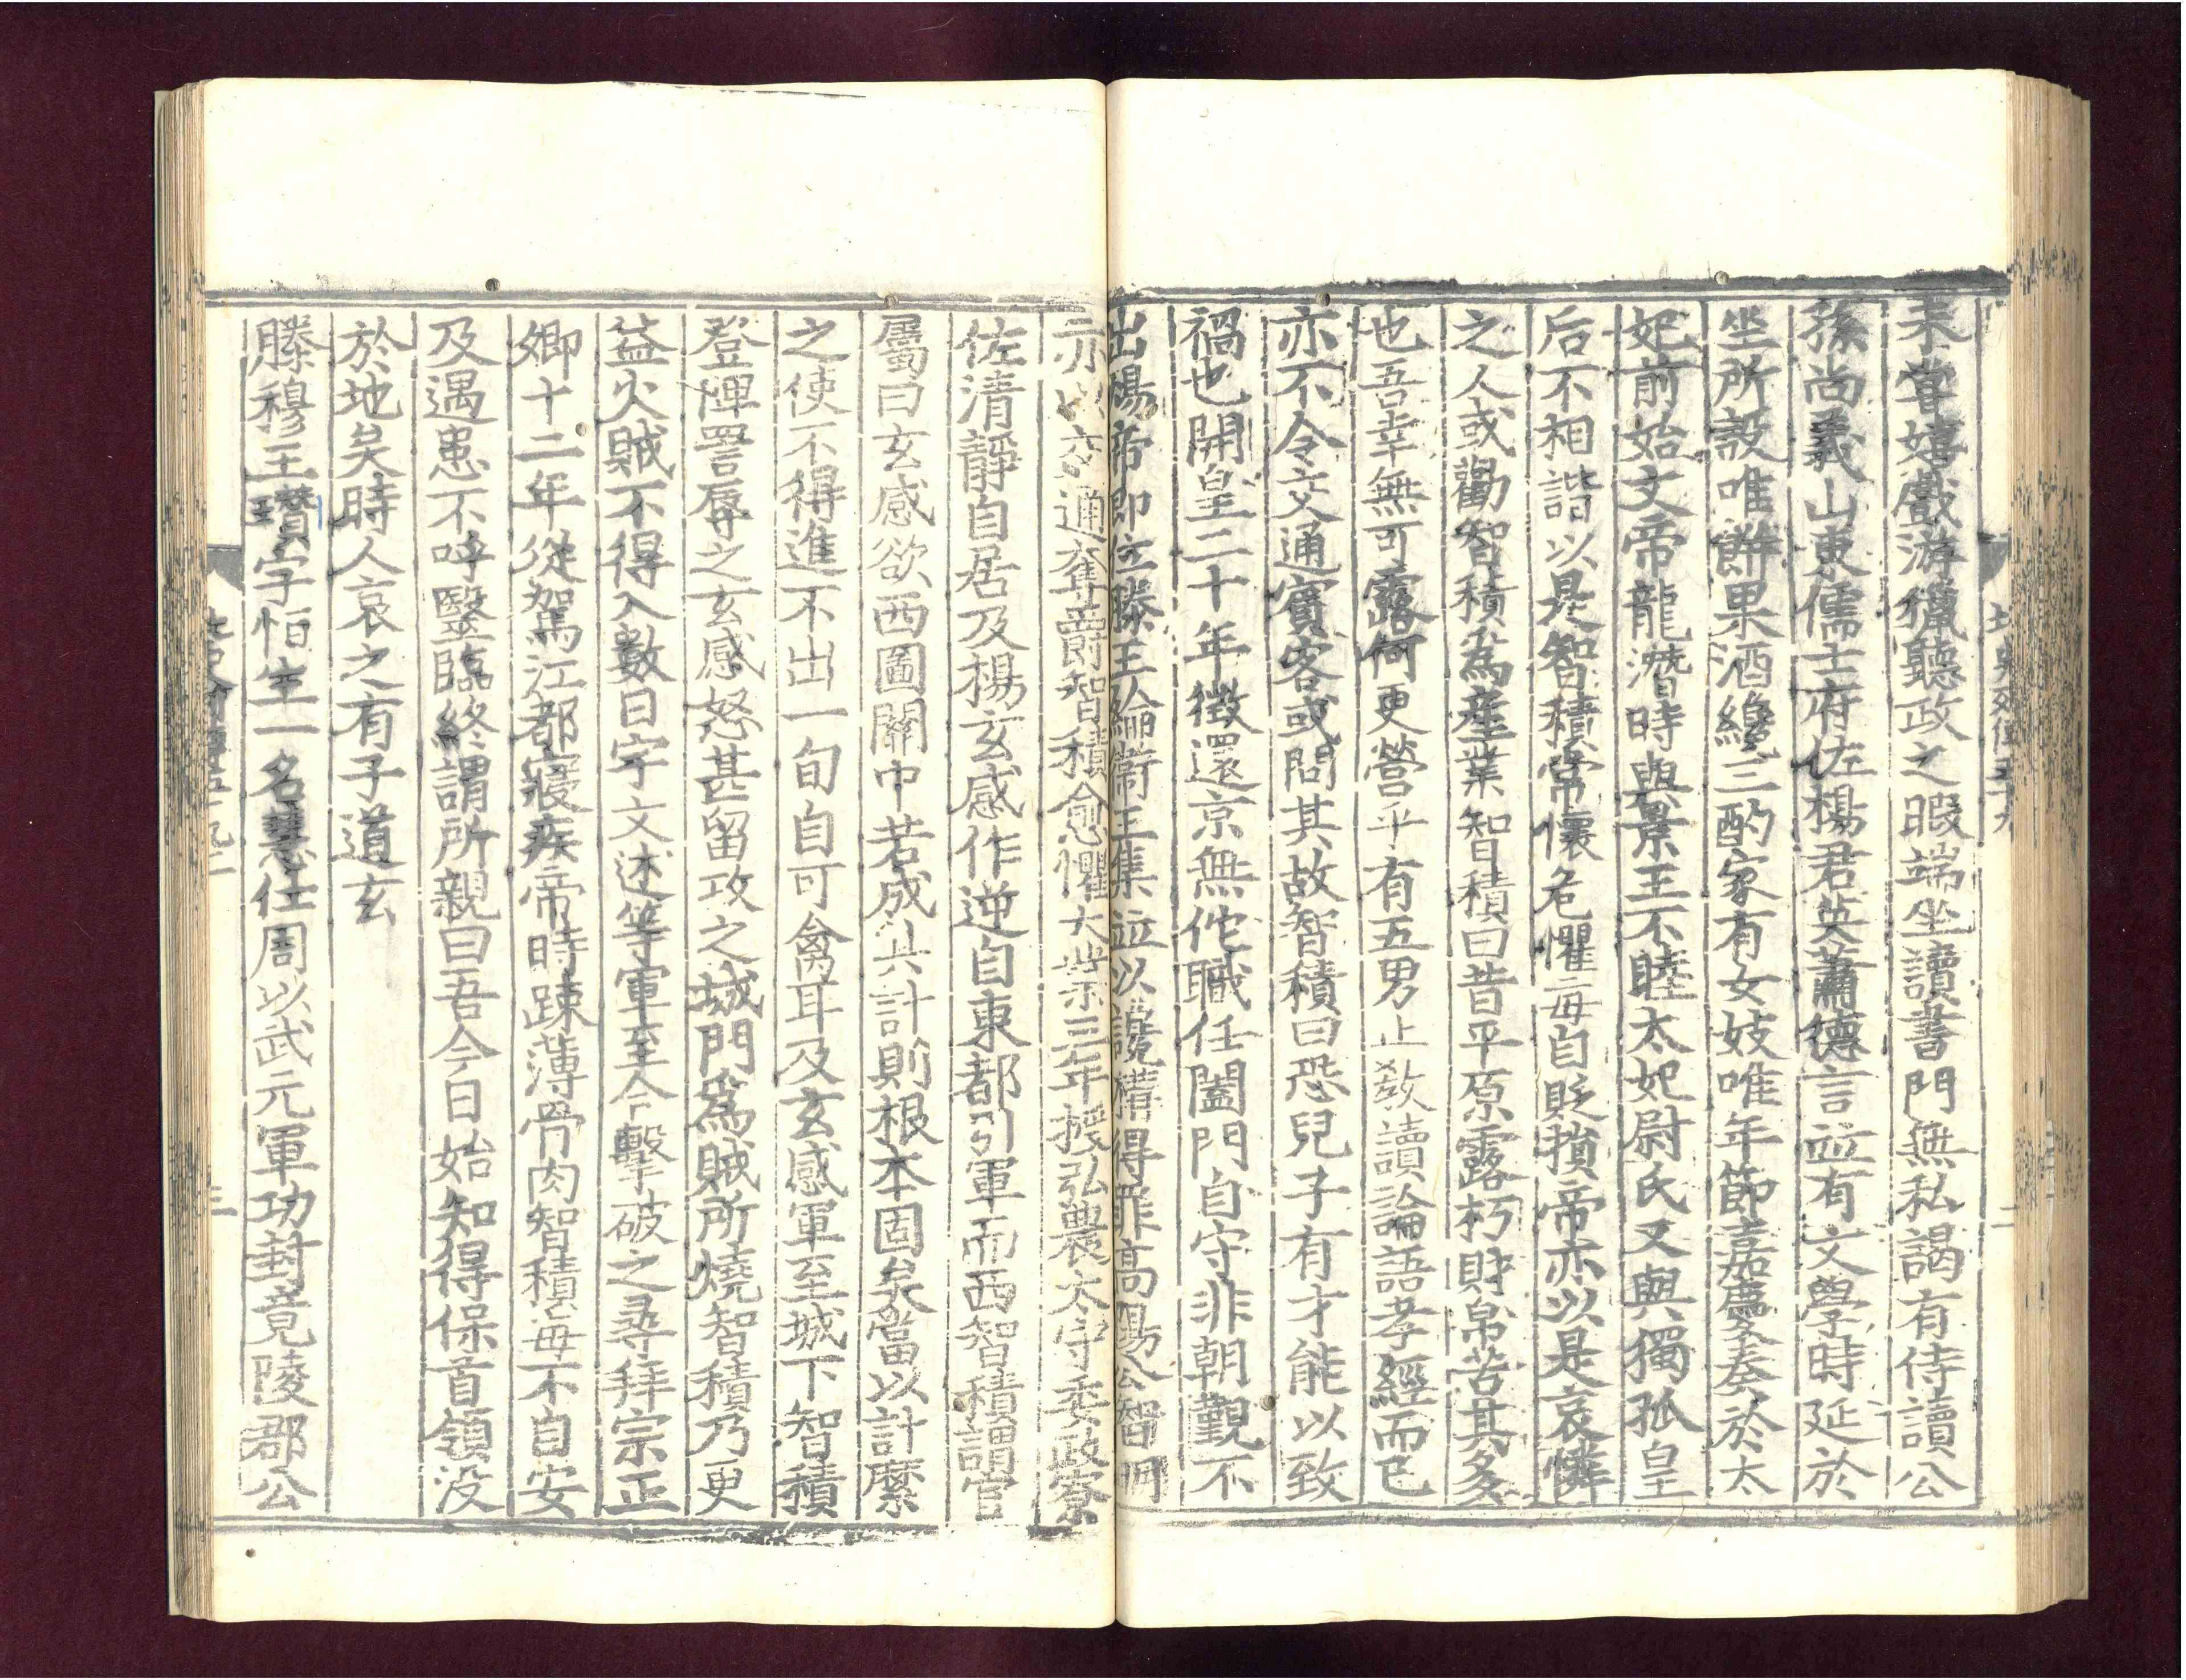 未嘗嬉戲游獵聽政之暇端坐讀書門無私謁有侍讀公
孫尚義山東儒士府佐楊君英蕭德言並有文學時延於
坐所設唯餅果酒纔三酌家有女妓唯年節嘉慶奏於太
妃前始文帝龍潛時與景王不睦太妃尉氏又與獨孤皇
后不相諧以是智積常懷危懼每自貶損帝亦以是哀憐
之人或勸智積爲産業智積曰昔平原露朽財帛苦其多
也吾幸無可露何更營乎有五男止敎讀論語孝經而已
亦不令交通賓客或問其故智積曰恐兒子有才能以致
禍也開皇二十年徵還京無佗職任闔門自守非朝覲不
出楊帝即位滕王綸衛王集並以讒構得罪高陽公智明
亦以交通奪爵智積愈懼大業三年授弘農太守委政寮
佐清靜自居及楊玄感作逆自東都引軍而西智積謂官
屬曰玄感欲西圖關中若成共計則根本固矣當以計縻
之使不得進不出一旬自可禽耳及玄感軍至城下智積
登陴詈辱之玄感怒甚留攻之城門爲賊所燒智積乃更
益火賊不得入數日宇文述等軍至合擊破之尋拜宗正
卿十二年從駕江都寢疾帝時踈薄骨肉智積每不自安
及遇患不呼醫臨終謂所親曰吾今日始知得保首領没
於地矣時人哀之有子道玄
滕穆王瓚字恒生一名慧仕周以武元軍功封竟陵郡公